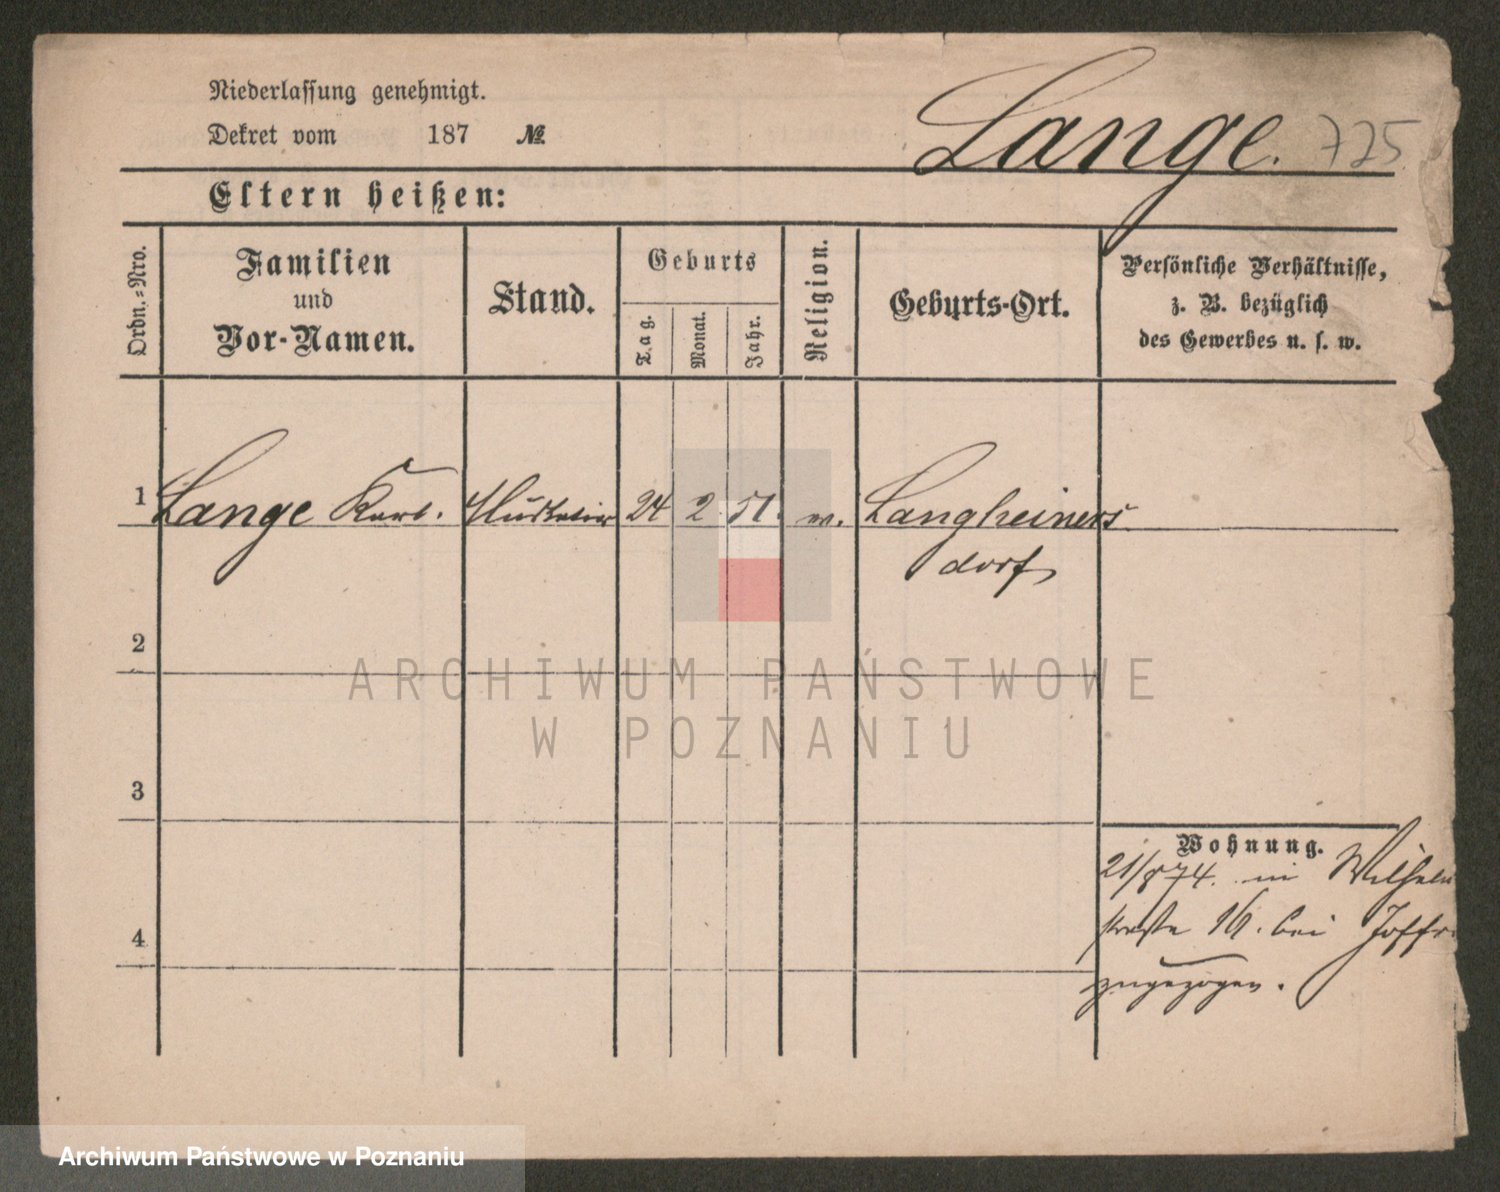 Niederlassung genehmigt.
Dekret vom 187 №
Lange. 725
Eltern heißen:
Ordn.-Nro.
Familien
und
Vor-Namen.
Stand.
Geburts
Tag.
Monat.
Jahr.
Religion.
Geburts-Ort.
Persönliche Verhältnisse,
z. B. bezüglich
des Gewerbes u. s. w.
1 Lange Karl. 24 2 51. Langheiners
dorf
2
ARCHIWUM PAŃSTWOWE
W POZNANIU
3
Wohnung.
21/8 74. in Wilhelm
straße 16. bei
4
zugezogen.
Archiwum Państwowe w Poznaniu